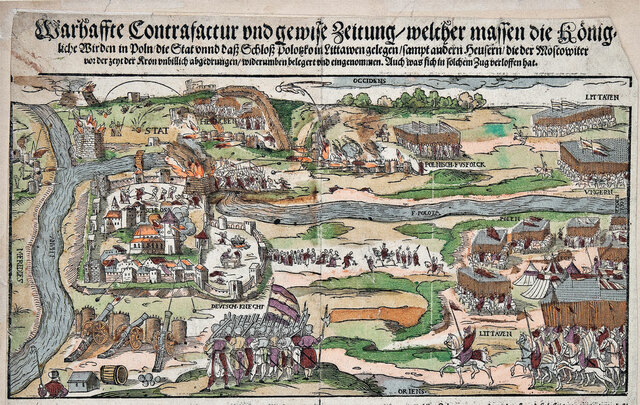 Warhaffte Contrafactur vnd gewiſe Zeitung/ welcher maſſen die König-
liche Wirden in Poln/ die Stat vnnd daß Schloß Polotzko in Littawen gelegen/ ſampt andern Heuſern/ die der Moſcowiter
vor der zeyt der Kron vnbillich abgedrungen/ widerumben belegert vnd eingenommen. Auch was ſich in ſolchem Zug verloffen hat.
OCCIDENS
LITTAVEN
STAT
POLNISCH FVSFOLCK
VNGERN
F POLOTA
POLEN
MERIDIES
DEVTSCH KNECHT
LITTAVEN
ORIENS